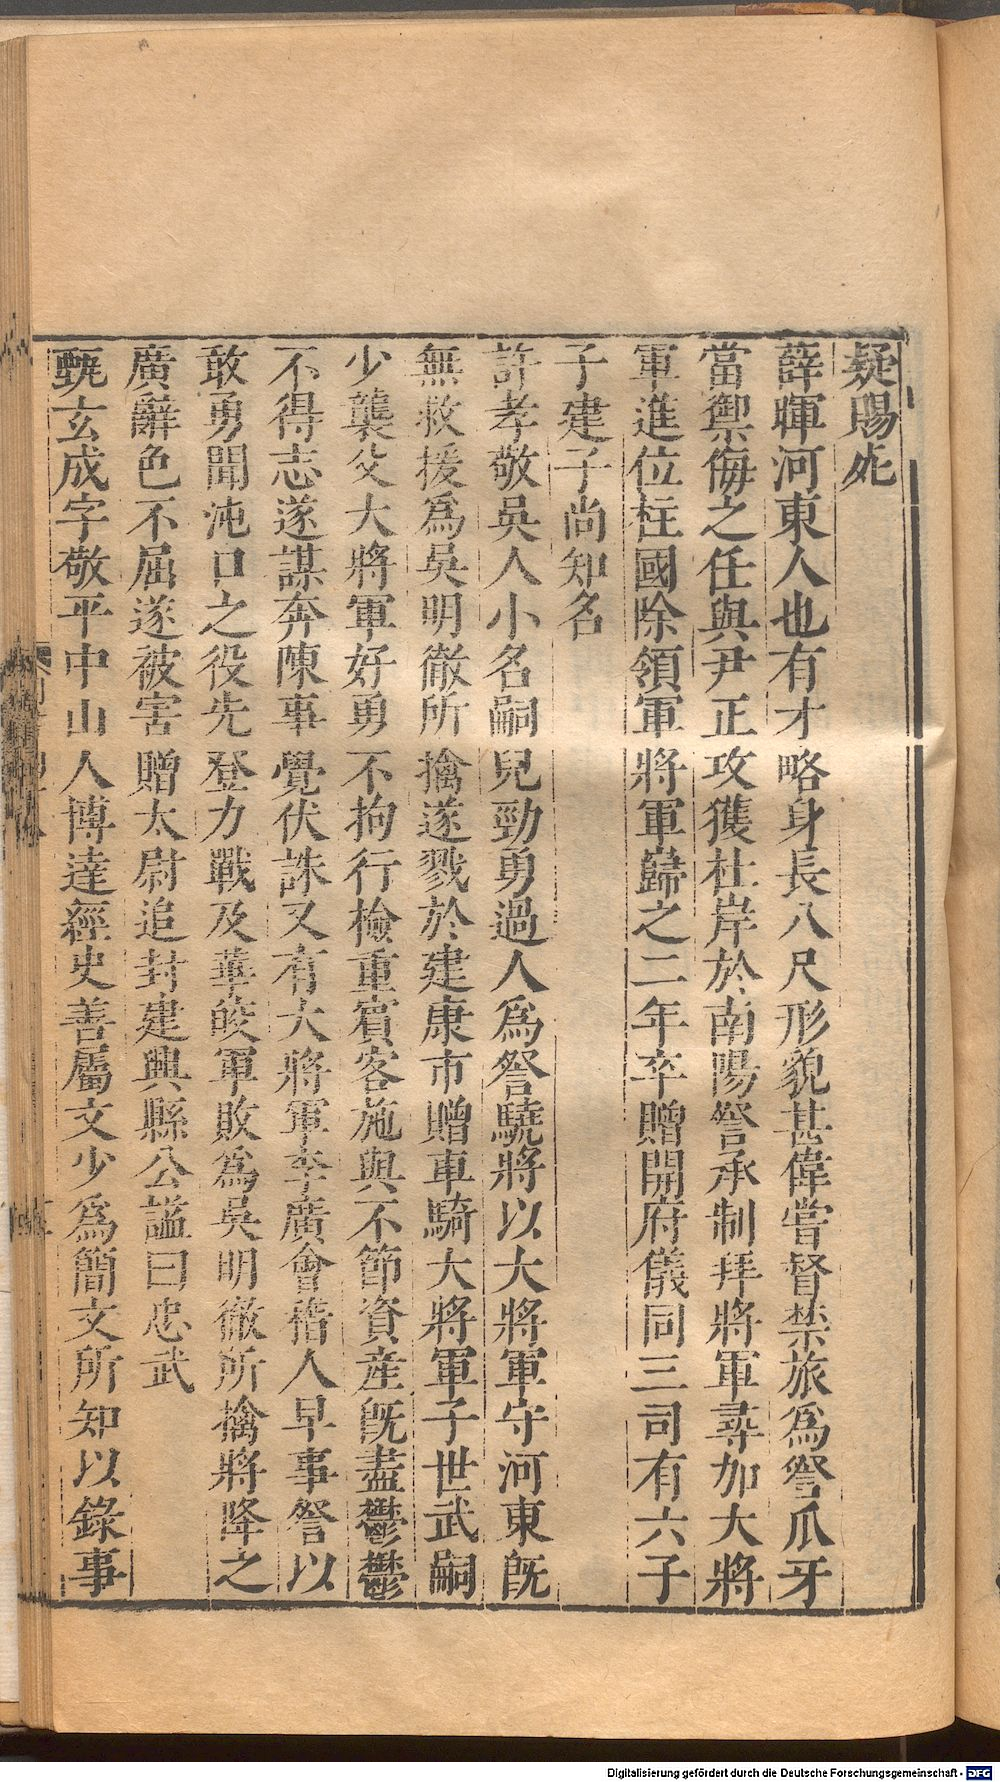 疑賜死
薛暉河東人也有才略身長八尺形貌甚偉嘗督禁旅為詧爪牙
當禦侮之任與尹正攻獲杜岸於南陽詧承制拜將軍尋加大將
軍進位柱國除領軍將軍歸之二年卒贈開府儀同三司有六子
子建子尚知名
許孝敬吳人小名嗣兒勁勇過人為詧驍將以大將軍守河東既
無救援爲吳明徹所擒遂戮於建康市贈車騎大將軍子世武嗣
少襲父大將軍好勇不拘行檢重賓客施與不節資産既盡鬱鬱
不得志遂謀奔陳事覺伏誅又有大將軍李廣會稽人早事詧以
敢勇聞沌口之役先登力戰及華皎軍敗為吳明徹所擒將降之
廣辭色不屈遂被害贈太尉追封建興縣公謚曰忠武
甄玄成字敬平中山人博達經史善屬文少為簡文所知以錄事
Digitalisierung gefördert durch die Deutsche Forschungsgemeinschaft - DFG